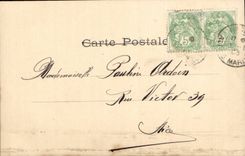 Carte Postale
Mademoiselle Pauline Ardoin
Rue Victor 39
Nice